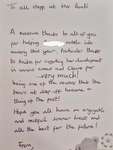 To all staff at Mrs
A massive thanks to all of you
for helping settle into
nursery this year. Particular thanks
to Anita for supporting her development
in various areas and Claire for
very much!
being one of the reasons that the
tears at drop-off became a
thing of the past!
Hope you all have an enjoyable
and restful summer break and
all the best for the future!
From,